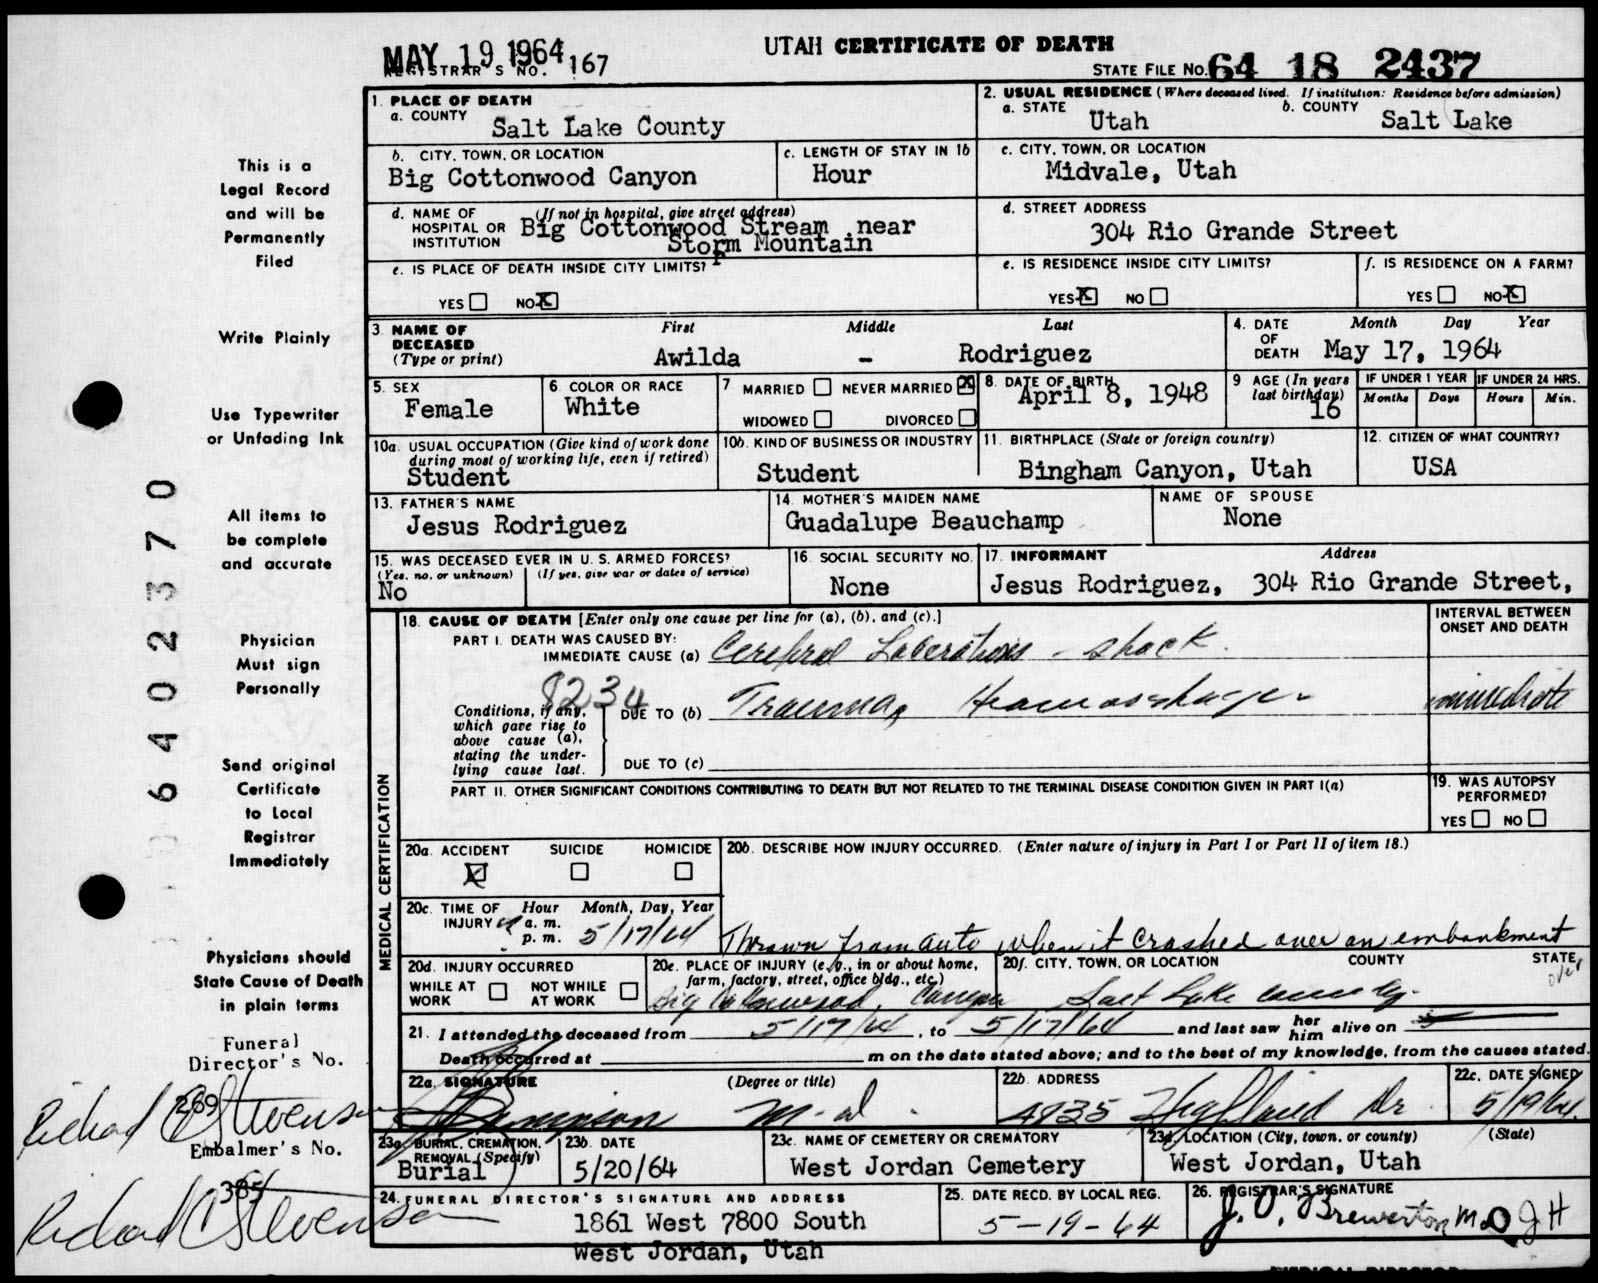 MAY 19 1964
REGISTRAR'S NO. 167
UTAH CERTIFICATE OF DEATH
STATE FILE NO. 64 18 2437
1. PLACE OF DEATH
a. COUNTY Salt Lake County
2. USUAL RESIDENCE (Where deceased lived. If institution: Residence before admission)
a. STATE Utah b. COUNTY Salt Lake
b. CITY, TOWN, OR LOCATION
Big Cottonwood Canyon
c. LENGTH OF STAY IN 1b
Hour
c. CITY, TOWN, OR LOCATION
Midvale, Utah
d. NAME OF HOSPITAL OR INSTITUTION (If not in hospital, give street address)
Big Cottonwood Stream near
Storm Mountain
d. STREET ADDRESS
304 Rio Grande Street
e. IS PLACE OF DEATH INSIDE CITY LIMITS?
YES NO X
e. IS RESIDENCE INSIDE CITY LIMITS?
YES X NO
f. IS RESIDENCE ON A FARM?
YES NO X
3. NAME OF DECEASED (Type or print)
First Middle Last
Awilda - Rodriguez
4. DATE OF DEATH Month Day Year
May 17, 1964
5. SEX
Female
6 COLOR OR RACE
White
7 MARRIED NEVER MARRIED X
WIDOWED DIVORCED
8. DATE OF BIRTH
April 8, 1948
9 AGE (In years last birthday)
16
IF UNDER 1 YEAR IF UNDER 24 HRS.
Months Days Hours Min.
10a. USUAL OCCUPATION (Give kind of work done during most of working life, even if retired)
Student
10b. KIND OF BUSINESS OR INDUSTRY
Student
11. BIRTHPLACE (State or foreign country)
Bingham Canyon, Utah
12. CITIZEN OF WHAT COUNTRY?
USA
13. FATHER'S NAME
Jesus Rodriguez
14. MOTHER'S MAIDEN NAME
Guadalupe Beauchamp
NAME OF SPOUSE
None
15. WAS DECEASED EVER IN U. S. ARMED FORCES?
(Yes, no, or unknown) (If yes, give war or dates of service)
No
16. SOCIAL SECURITY NO.
None
17. INFORMANT Address
Jesus Rodriguez, 304 Rio Grande Street,
MEDICAL CERTIFICATION
18. CAUSE OF DEATH [Enter only one cause per line for (a), (b), and (c).]
INTERVAL BETWEEN ONSET AND DEATH
PART I. DEATH WAS CAUSED BY:
IMMEDIATE CAUSE (a) Cerebral Lacerations - shock
8234
Conditions, if any, which gave rise to above cause (a), stating the underlying cause last.
DUE TO (b) Trauma, immediate
DUE TO (c)
PART II. OTHER SIGNIFICANT CONDITIONS CONTRIBUTING TO DEATH BUT NOT RELATED TO THE TERMINAL DISEASE CONDITION GIVEN IN PART I(a)
19. WAS AUTOPSY PERFORMED?
YES NO
20a. ACCIDENT SUICIDE HOMICIDE
X
20b. DESCRIBE HOW INJURY OCCURRED. (Enter nature of injury in Part I or Part II of item 18.)
Thrown from auto when it crashed over an embankment
over
20c. TIME OF INJURY Hour Month, Day, Year
a. m.
p. m. 5/17/64
20d. INJURY OCCURRED
WHILE AT WORK NOT WHILE AT WORK
20e. PLACE OF INJURY (e. g., in or about home, farm, factory, street, office bldg., etc.)
Big Cottonwood Canyon
20f. CITY, TOWN, OR LOCATION COUNTY STATE
Salt Lake County
21. I attended the deceased from 5/17/64, to 5/17/64 and last saw her him alive on
Death occurred at m on the date stated above; and to the best of my knowledge, from the causes stated.
22a. SIGNATURE (Degree or title)
M.D.
22b. ADDRESS
4835 Highland Dr
22c. DATE SIGNED
5/19/64
23a. BURIAL, CREMATION, REMOVAL (Specify)
Burial
23b. DATE
5/20/64
23c. NAME OF CEMETERY OR CREMATORY
West Jordan Cemetery
23d. LOCATION (City, town, or county) (State)
West Jordan, Utah
24. FUNERAL DIRECTOR'S SIGNATURE AND ADDRESS
1861 West 7800 South
West Jordan, Utah
25. DATE RECD. BY LOCAL REG.
5-19-64
26. REGISTRAR'S SIGNATURE
J. O. Brewerton M.D. JH
This is a
Legal Record
and will be
Permanently
Filed
Write Plainly
Use Typewriter
or Unfading Ink
All items to
be complete
and accurate
Physician
Must sign
Personally
Send original
Certificate
to Local
Registrar
Immediately
Physicians should
State Cause of Death
in plain terms
Funeral
Director's No.
269
Richard C Stevenson
Embalmer's No.
385
Richard C Stevenson
6402370